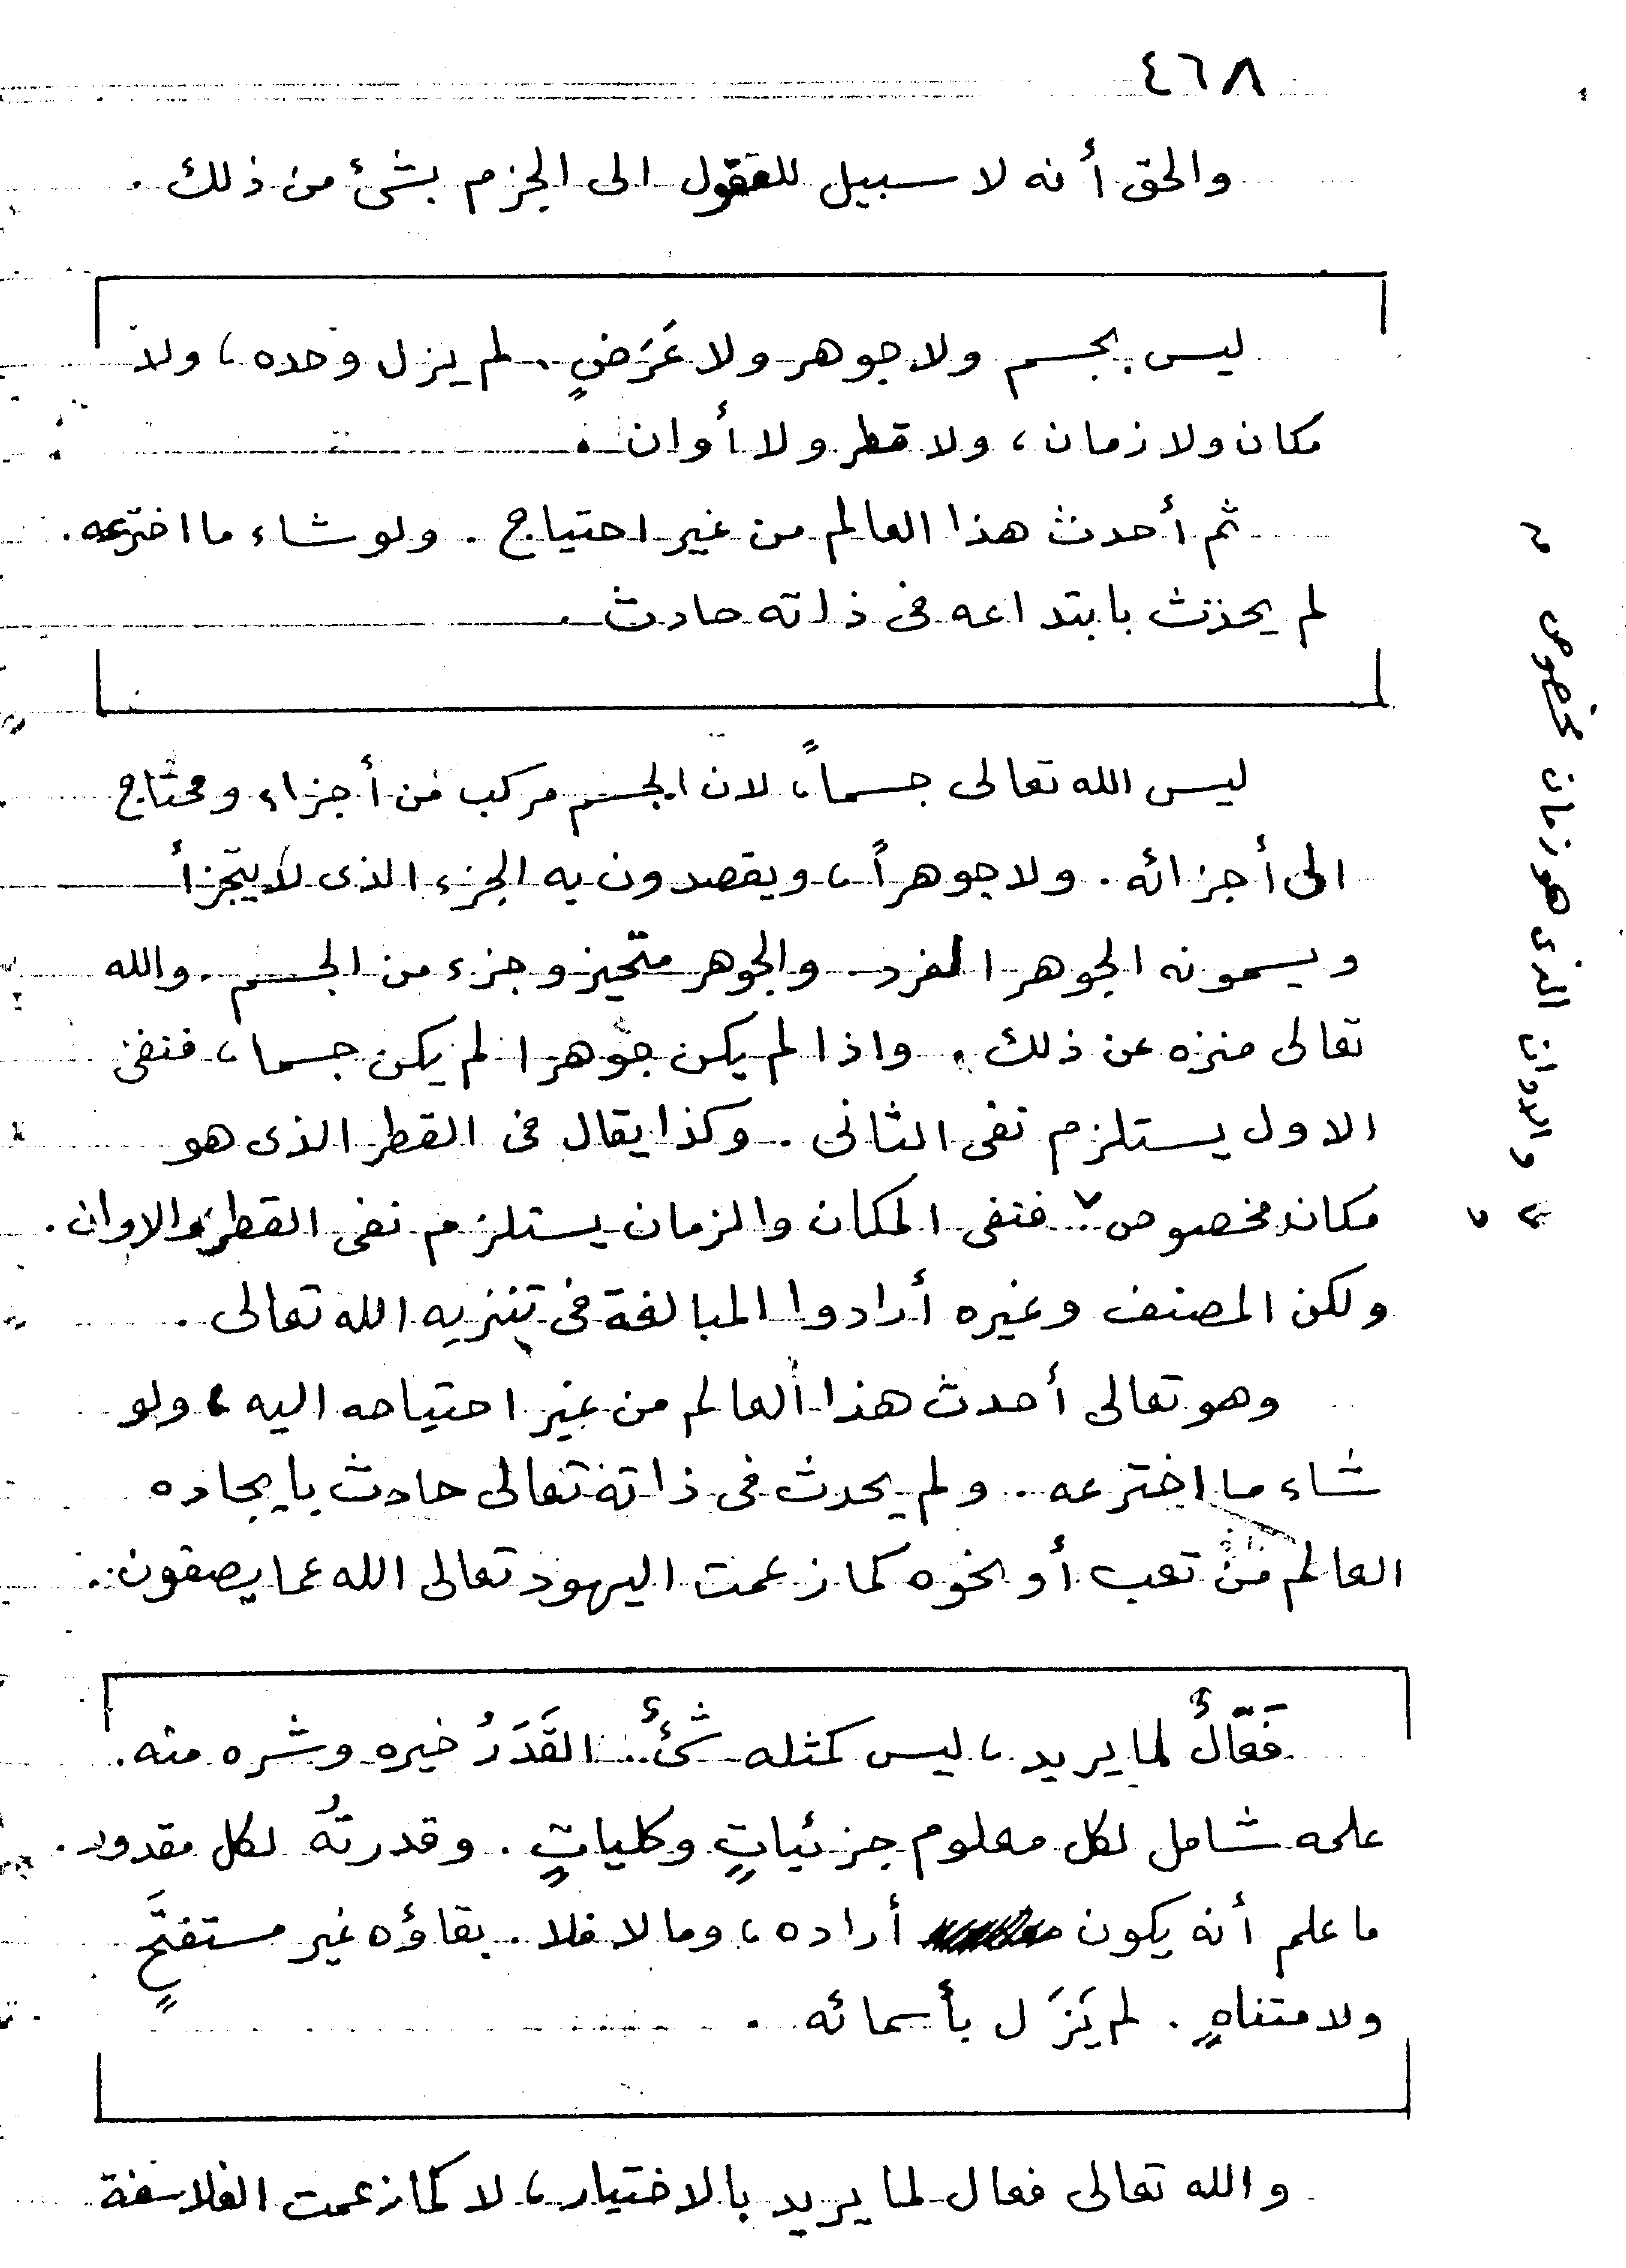 ٤٦٨
والحق أنه لا سبيل للعقول الى الجزم بشئ من ذلك .
ليس بجسم ولا جوهر ولا عَرَضٍ . لم يزل وحده ، ولا
مكان ولا زمان ، ولا قطر ولا أوان .
ثم أحدث هذا العالم من غير احتياج . ولو شاء ما اخترعه .
لم يحدث بابتداعه فى ذاته حادث
ليس الله تعالى جسماً ، لان الجسم مركب من أجزاء ومحتاج
الى أجزائه . ولا جوهراً ، ويقصدون به الجزء الذى لا يتجزأ
ويسمونه الجوهر الفرد . والجوهر متحيز وجزء من الجسم . والله
تعالى منزه عن ذلك . واذا لم يكن جوهرا لم يكن جسما ، فنفى
الاول يستلزم نفى الثانى . وكذا يقال فى القطر الذى هو
مكان مخصوص ٧ . فنفى المكان والزمان يستلزم نفى القطر والاوان .
ولكن المصنف وغيره أرادوا المبالغة فى تنزيه الله تعالى .
وهو تعالى أحدث هذا العالم من غير احتياجه اليه ، ولو
شاء ما اخترعه . ولم يحدث فى ذاته تعالى حادث بايجاده
العالم من تعب أو نحوه كما زعمت اليهود تعالى الله عما يصفون .
فَعّالٌ لما يريد ، ليس كمثله شئٌ . القَدَرُ خيره وشره منه .
علمه شامل لكل معلوم جزئياتٍ وكلياتٍ . وقدرتُه لكل مقدور .
ما علم أنه يكون أراده ، وما لا فلا . بقاؤه غير مستفتَحٍ
ولا متناهٍ . لم يَزَل بأسمائه .
والله تعالى فعال لما يريد بالاختيار ، لا كما زعمت الفلاسفة
٧ » والاوان الذى هو زمان مخصوص «